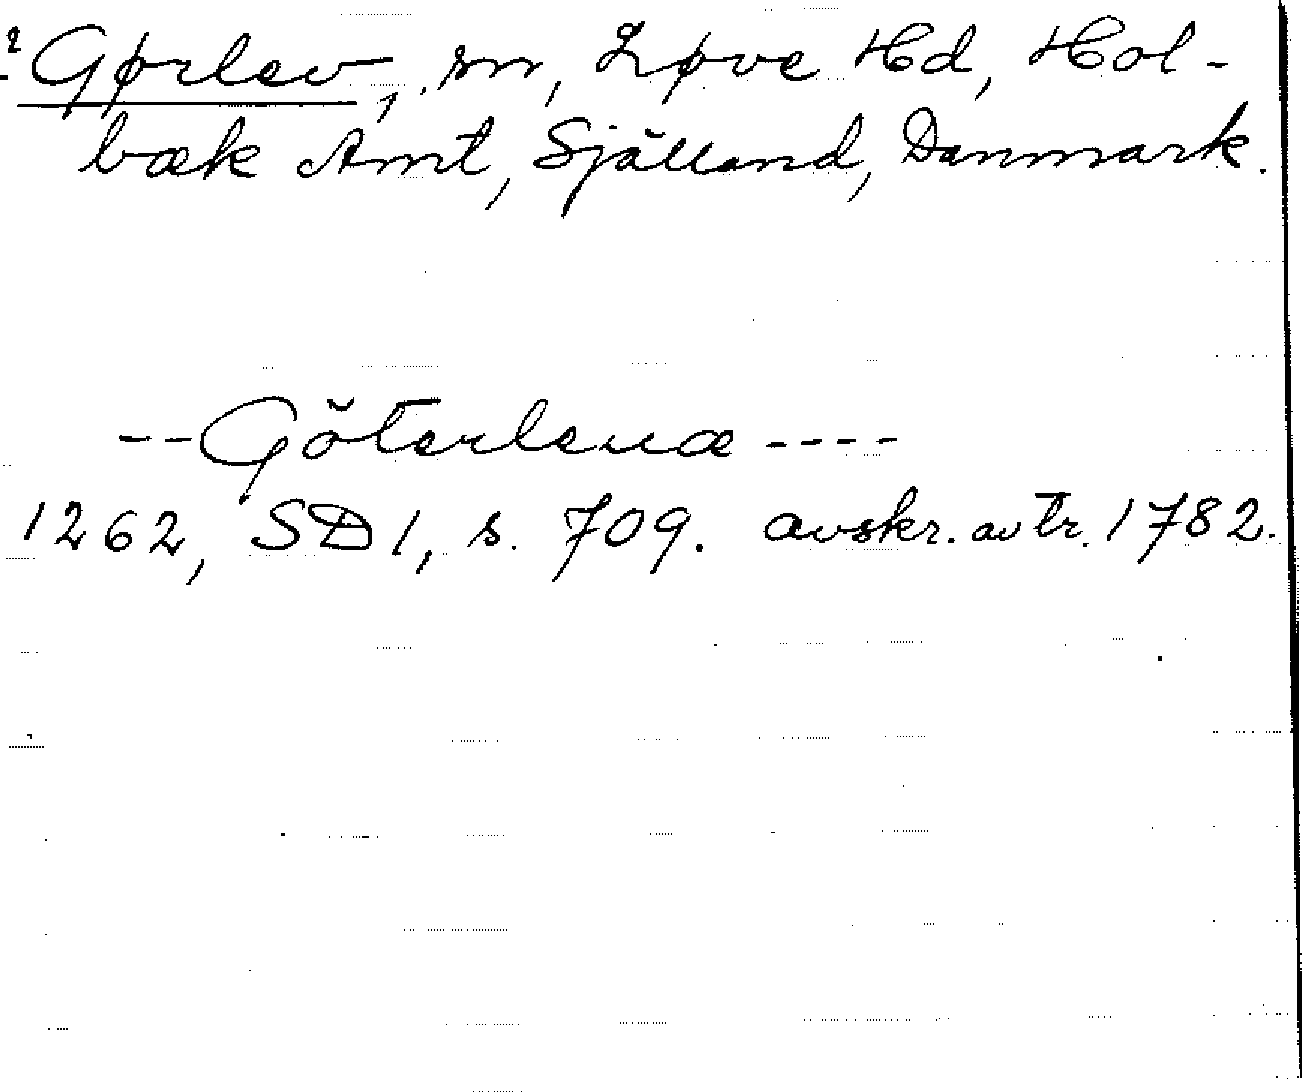 ? Gørlev, sn, Løve Hd, Hol-
bæk Amt, Själland, Danmark.
--Göterleuæ----
1262, SD 1, s. 709. avskr. av tr. 1782.